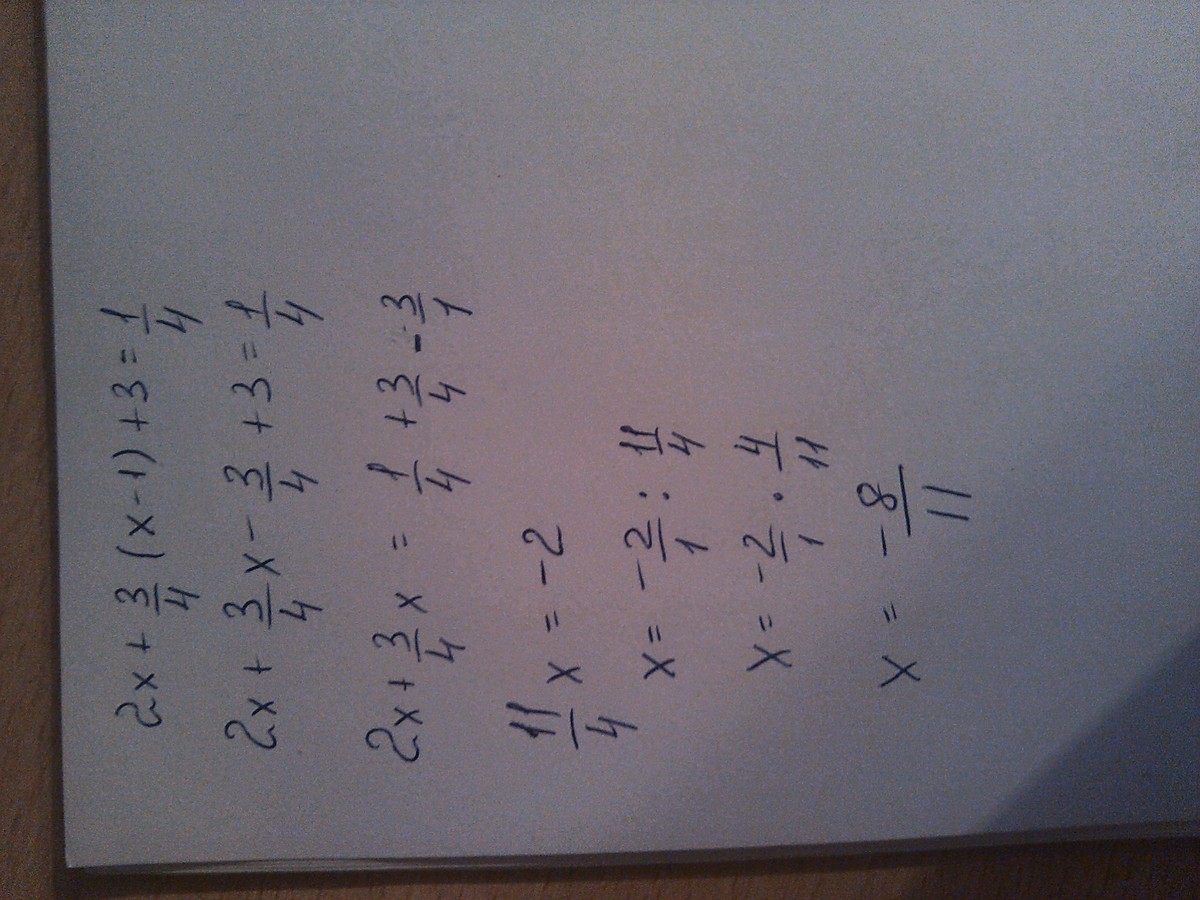 2x + 3/4 (x-1) + 3 = 1/4
2x + 3/4 x - 3/4 + 3 = 1/4
2x + 3/4 x = 1/4 + 3/4 - 3/1
11/4 x = -2
x = - 2/1 : 11/4
x = - 2/1 · 4/11
x = - 8/11